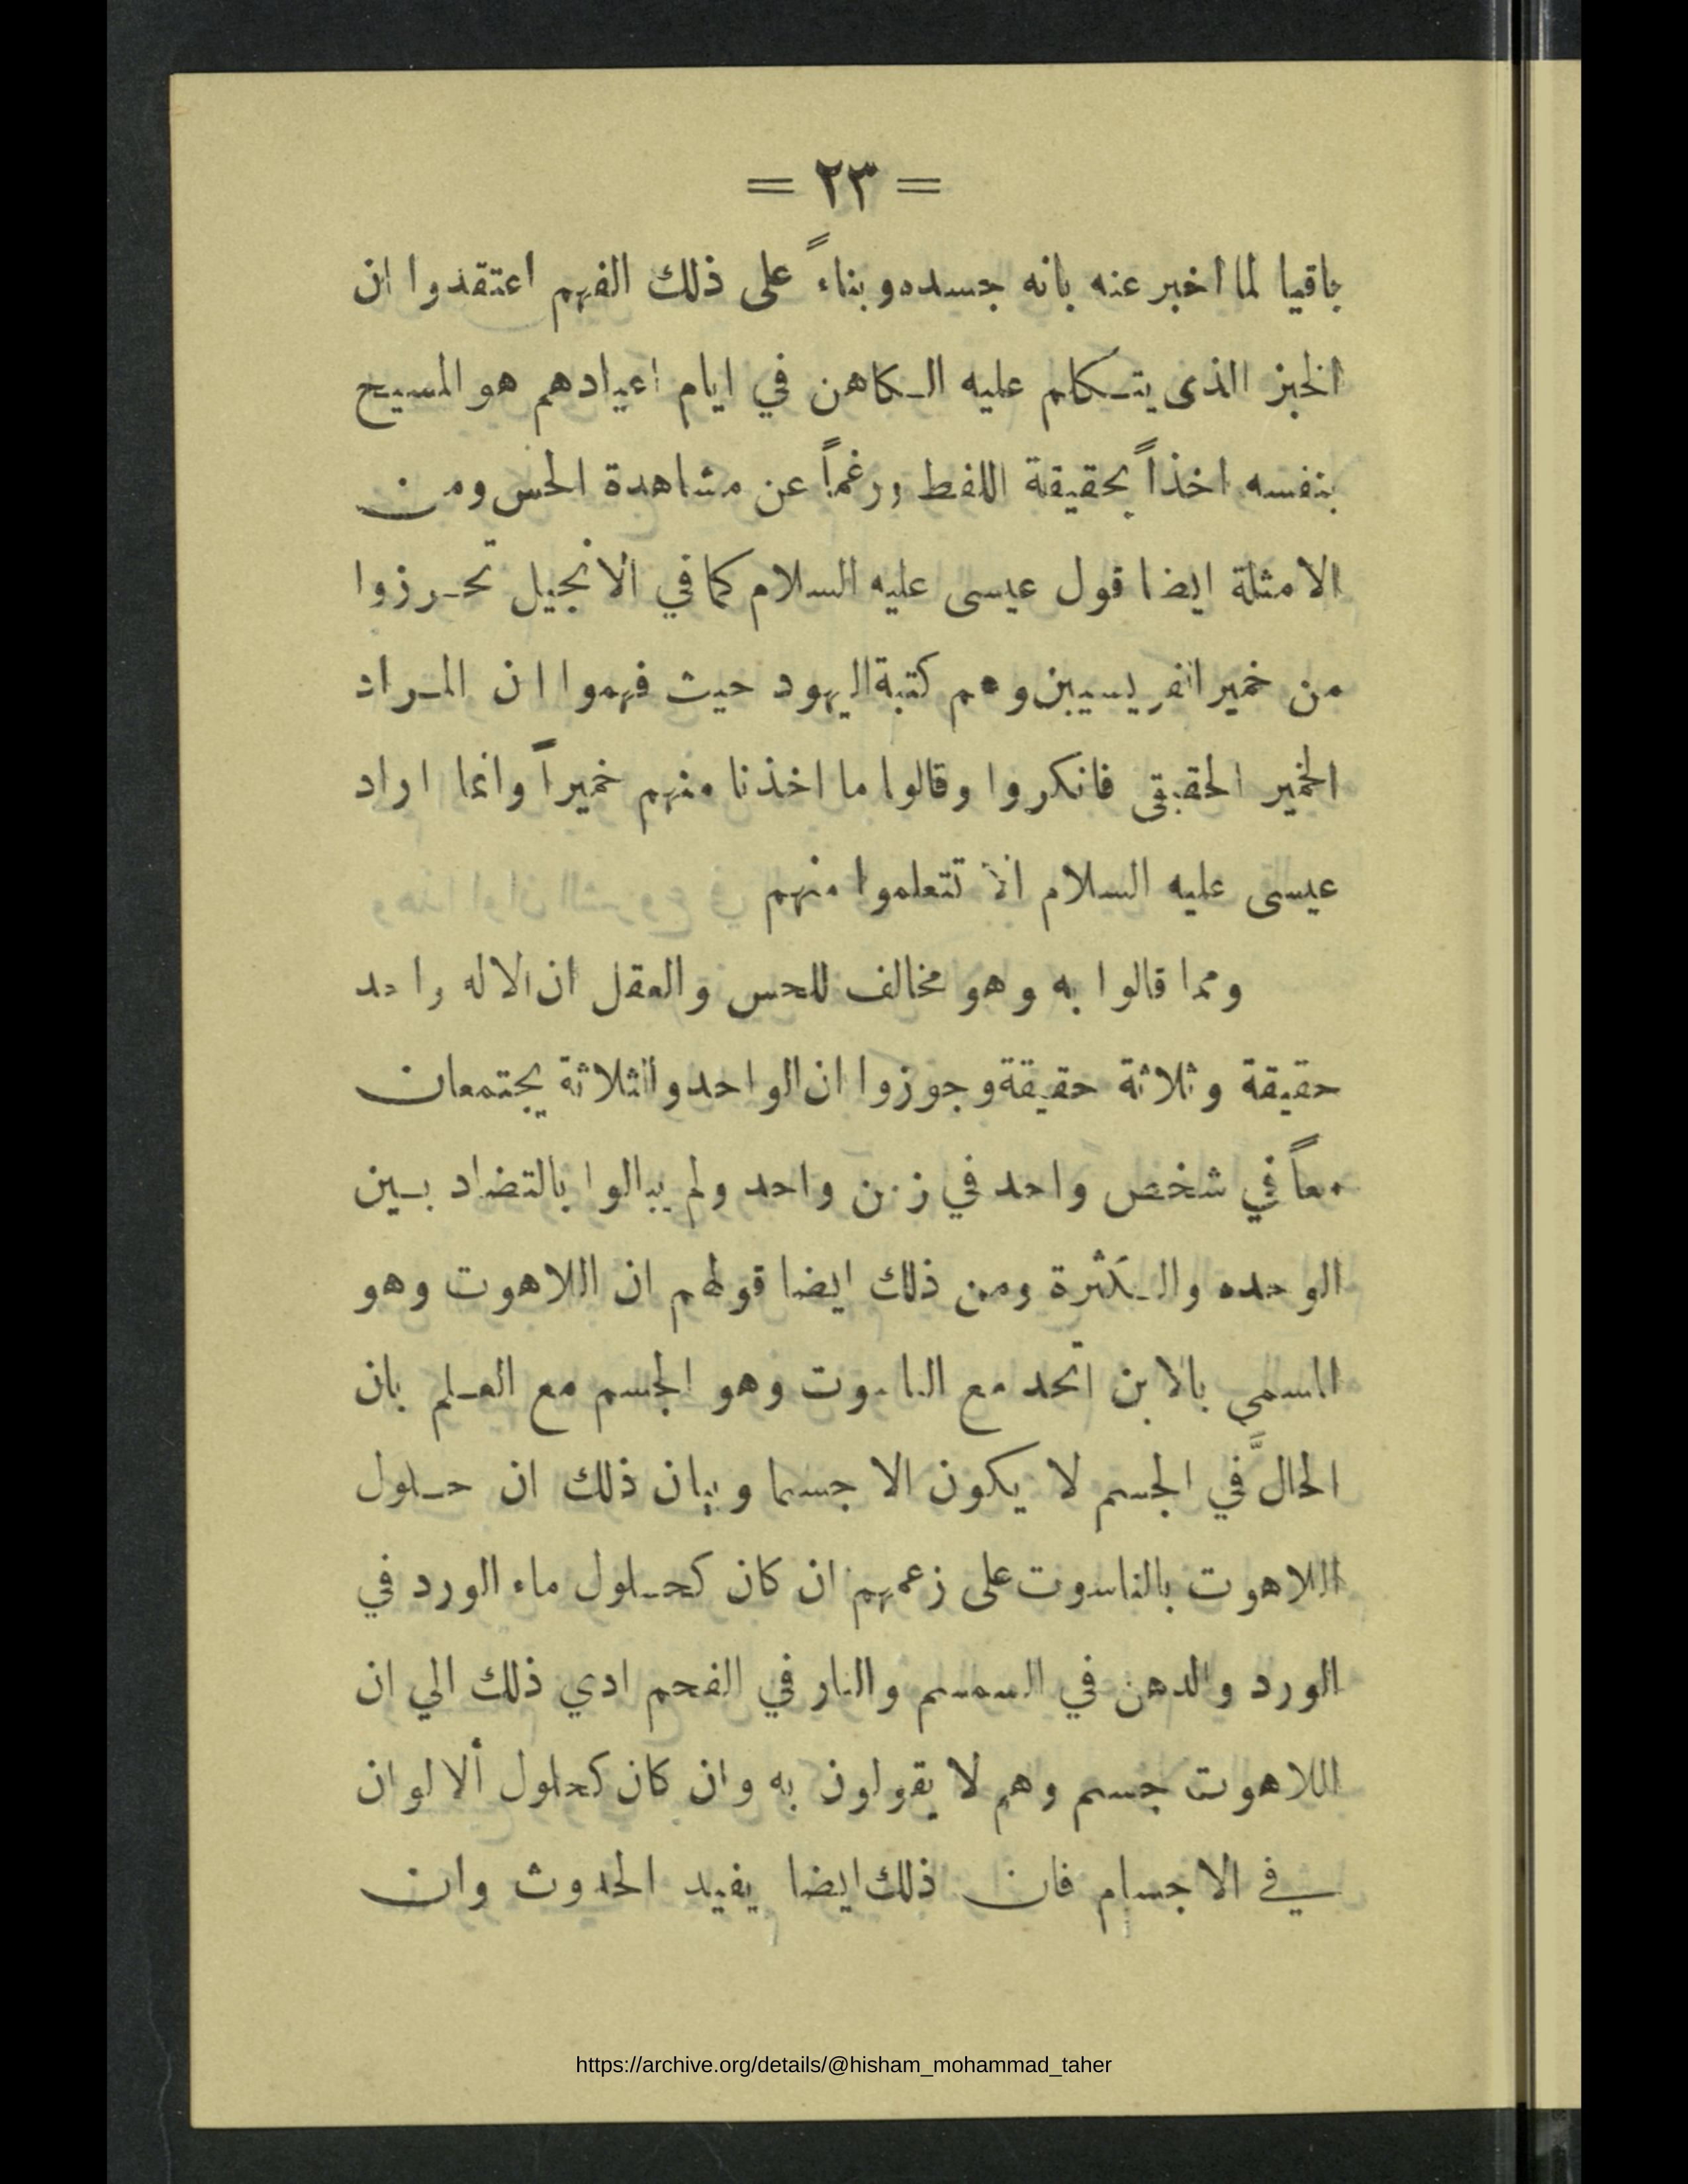 = ٢٣ =
باقيا لما اخبر عنه بانه جسده وبناءً على ذلك الفهم اعتقدوا ان
الخبز الذى يتكلم عليه الكاهن في ايام اعيادهم هو المسيح
بنفسه اخذاً بحقيقة اللفظ ورغماً عن مشاهدة الحس ومن
الامثلة ايضا قول عيسى عليه السلام كما في الانجيل تحرزوا
من خمير الفريسيين وهم كتبة اليهود حيث فهموا ان المراد
الخمير الحقيقى فانكروا وقالوا ما اخذنا منهم خميراً وانما اراد
عيسى عليه السلام الا تتعلموا منهم
ومما قالوا به وهو مخالف للحس والعقل ان الاله واحد
حقيقة وثلاثة حقيقة وجوزوا ان الواحد والثلاثة يجتمعان
معاً في شخص واحد في زمن واحد ولم يبالوا بالتضاد بين
الوحده والكثرة ومن ذلك ايضا قولهم ان اللاهوت وهو
المسمي بالابن اتحد مع الناسوت وهو الجسم مع العلم بان
الحالَّ في الجسم لا يكون الا جسما وبيان ذلك ان حلول
اللاهوت بالناسوت على زعمهم ان كان كحلول ماء الورد في
الورد والدهن في السمسم والنار في الفحم ادي ذلك الي ان
اللاهوت جسم وهم لا يقولون به وان كان كحلول ألالوان
في الاجسام فان ذلك ايضا يفيد الحدوث وان
https://archive.org/details/@hisham_mohammad_taher